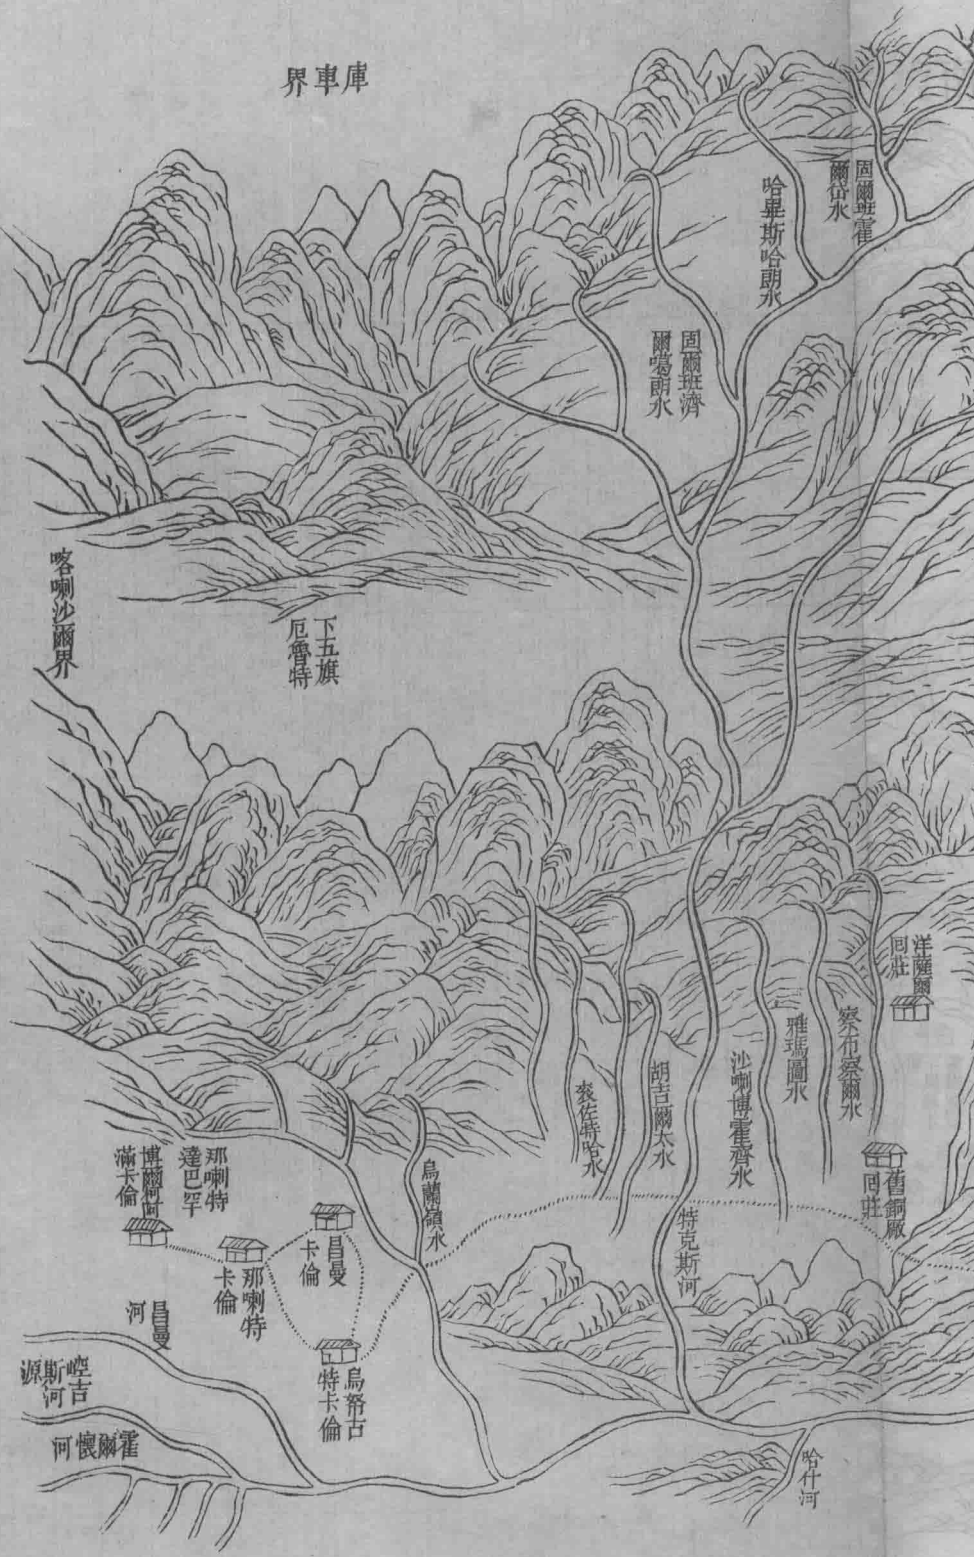 庫車界
固爾班霍
爾岱水
哈畢斯哈朗水
固爾班濟
爾噶朗水
喀喇沙爾界
下五旗
厄魯特
洋薩爾
回莊
察布察爾水
雅瑪圖水
沙喇博霍齊水
胡吉爾太水
袞佐特哈水
舊銅廠
回莊
特克斯河
烏蘭嶺水
那喇特
達巴罕
博爾柯阿
滿卡倫
昌曼
卡倫
那喇特
卡倫
昌曼
河
烏努古
特卡倫
崆吉
斯河
源
霍爾懷河
哈什河